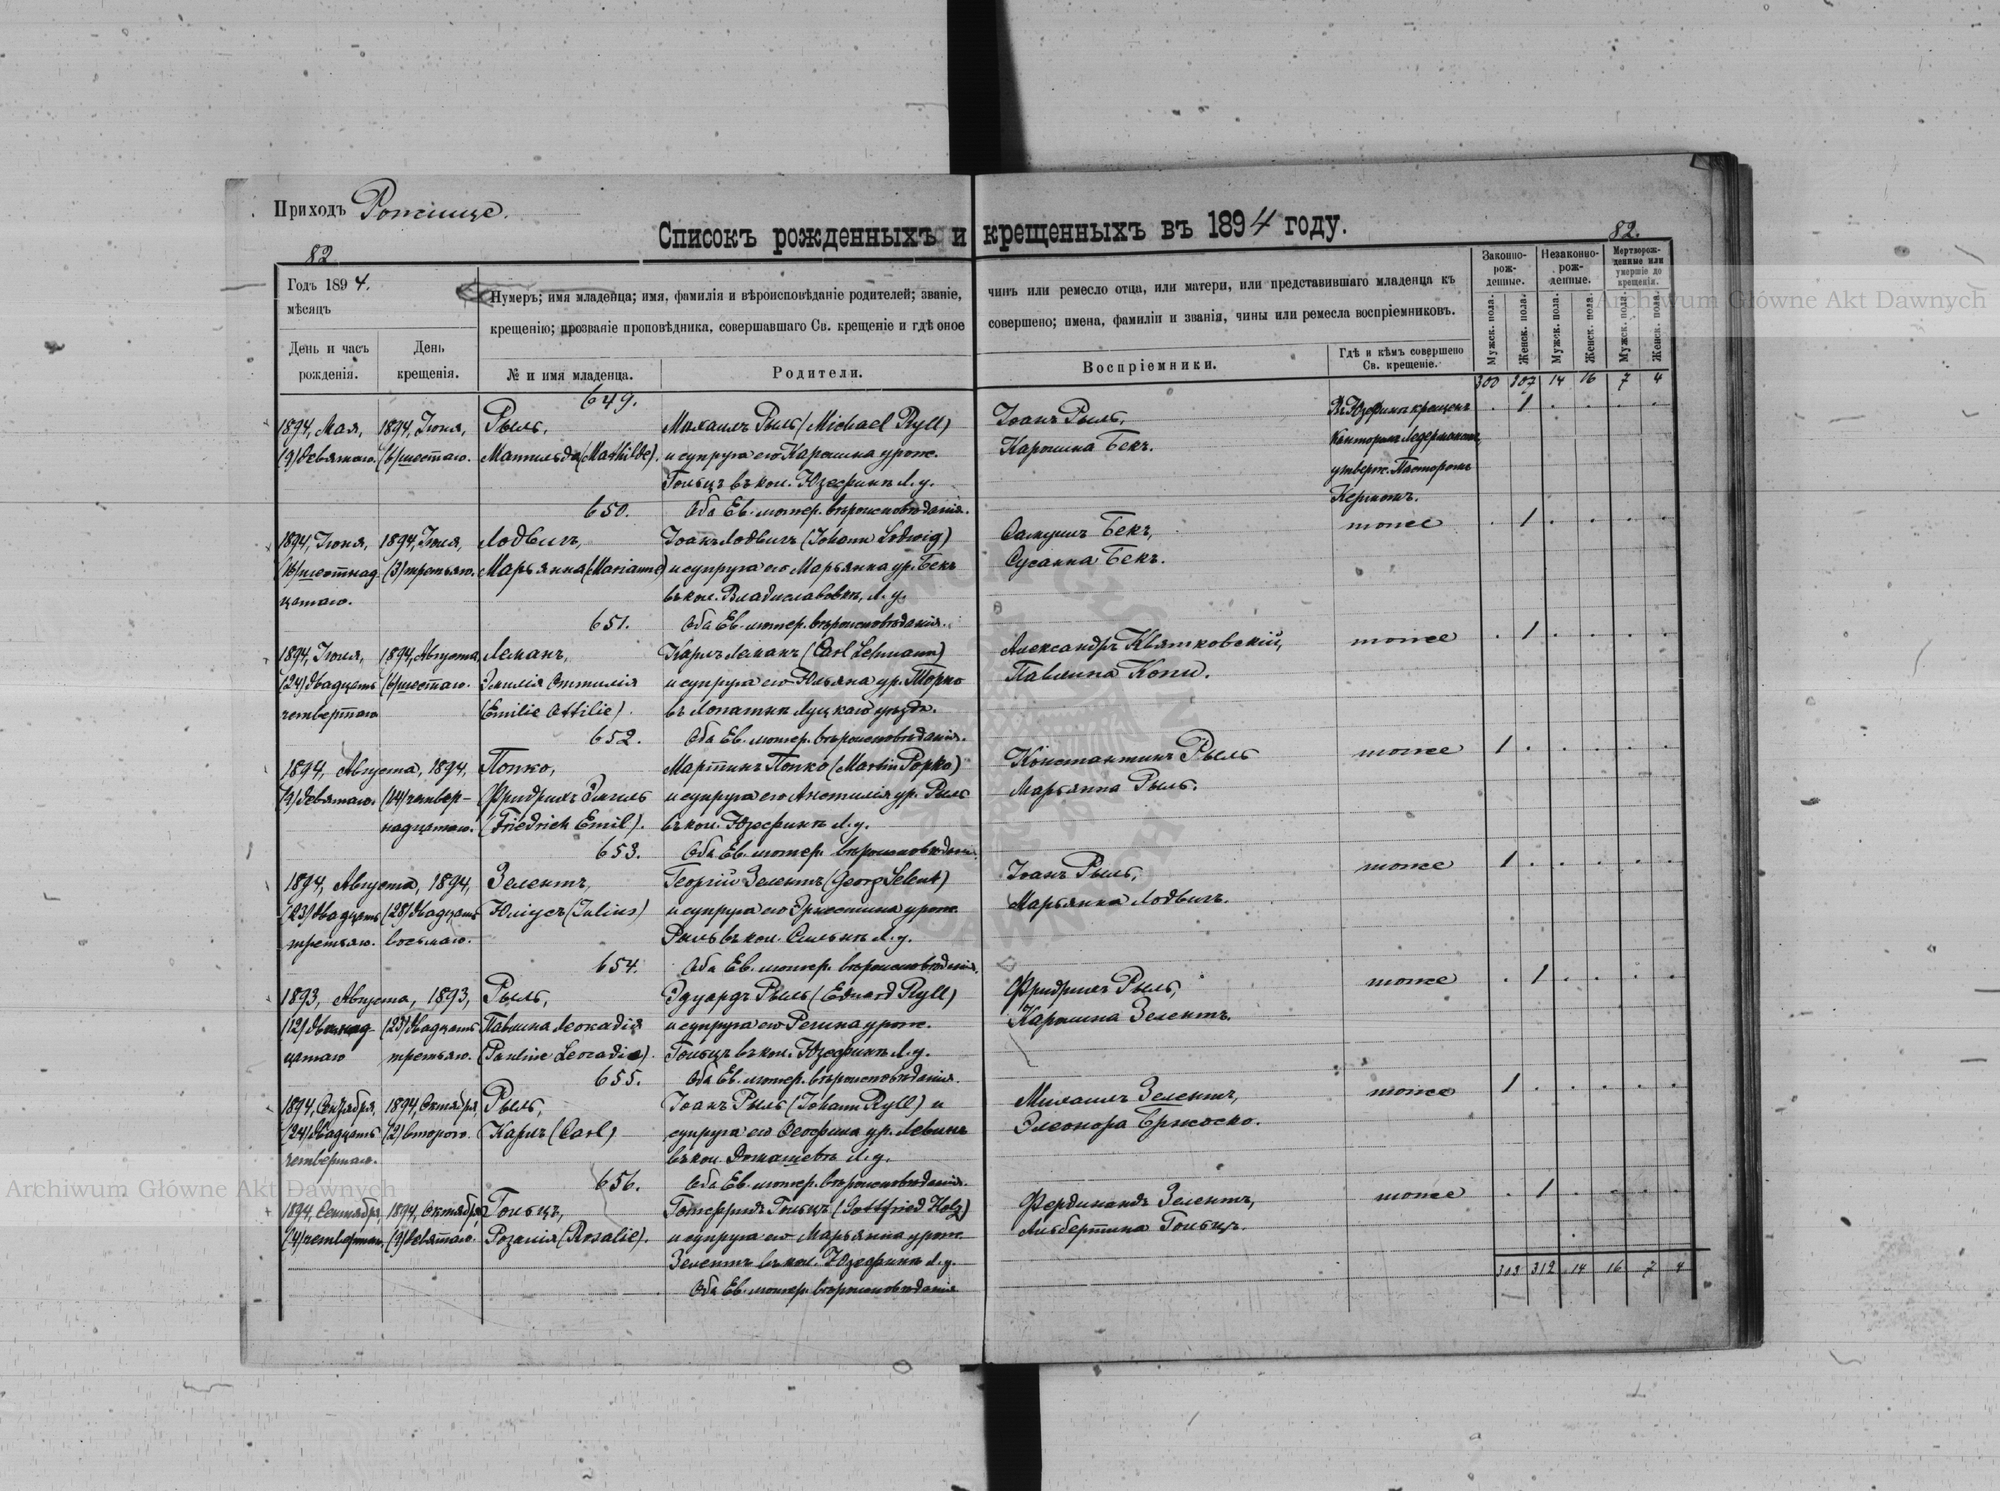 Приходъ Рожище.
Списокъ рожденныхъ и крещенныхъ въ 1894 году.
82
82.
Годъ 1894.
мѣсяцъ
День и часъ рожденія.
День крещенія.
Нумеръ; имя младенца; имя, фамилія и вѣроисповѣданіе родителей; званіе,
чинъ или ремесло отца, или матери, или представившаго младенца къ
крещенію; прозваніе проповѣдника, совершавшаго Св. крещеніе и гдѣ оное
совершено; имена, фамиліи и званія, чины или ремесла воспріемниковъ.
№ и имя младенца.
Родители.
Воспріемники.
Гдѣ и кѣмъ совершено Св. крещеніе.
Законно-рож-денные.
Незаконно-рож-денные.
Мертворож-денные или умершіе до крещенія.
Мужск. пола.
Женск. пола.
Мужск. пола.
Женск. пола.
Мужск. пола.
Женск. пола.
300 307 14 16 7 4
649.
1894, Мая, 1894, Іюня, Рыль, Михаилъ Рыль (Michael Ryll) Іоанъ Рыль, Въ Юзефинѣ крещенъ 1
(9) девятаго. (6) шестаго. Матильда (Mathilde). и супруга его Каролина урож. Каролина Бекъ. Канторомъ Ледерманомъ,
Гольцъ въ кол. Юзефинѣ Л. у. утверж. Пасторомъ
650. Оба Ев. лютер. вѣроисповѣданія. Кермомъ.
1894, Іюня, 1894, Іюля, Лодвигъ, Іоанъ Лодвигъ (Johann Lodwig) Самуилъ Бекъ, тоже 1
(16) шестнад (3) третьяго. Марьянна (Marianne) и супруга его Марьянна ур. Бекъ Сусанна Бекъ.
цатаго. въ кол. Владиславовкѣ, Л. у.
651. Оба Ев. лютер. вѣроисповѣданія.
1894, Іюля, 1894, Августа, Леманъ, Карлъ Леманъ (Carl Lehmann) Александръ Квятковскій, тоже 1
(24) двадцать (6) шестаго. Эмилія Оттилія и супруга его Юльяна ур. Торно Павлина Копи.
четвертаго (Emilie Ottilie). въ Лопатинѣ Луцкаго уѣзда.
652. Оба Ев. лютер. вѣроисповѣданія.
1894, Августа, 1894, Попко, Мартинъ Попко (Martin Popko) Константинъ Рыль тоже 1
(9) девятаго. (14) четвер- Фридрихъ Эмиль и супруга его Анотилія ур. Рыль Марьянна Рыль.
надцатаго. (Friedrich Emil). въ кол. Юзефинѣ Л. у.
653. Оба Ев. лютер. вѣроисповѣдан.
1894, Августа, 1894, Зелентъ, Георгій Зелентъ (Georg Selent) Іоанъ Рыль, тоже 1
(23) двадцать (28) двадцать Юліусъ (Julius) и супруга его Эрнестина урож. Марьянна Лодвигъ.
третьяго. восьмаго. Рыль въ кол. Л. у.
654. Оба Ев. лютер. вѣроисповѣданія.
1893, Августа, 1893, Рыль, Эдуардъ Рыль (Eduard Ryll) Фридрихъ Рыль, тоже 1
(12) двѣнад (23) двадцать Павлина Леокадія и супруга его Регина урож. Каролина Зелентъ.
цатаго третьяго. (Pauline Leocadie). Гольцъ въ кол. Юзефинѣ Л. у.
655. Оба Ев. лютер. вѣроисповѣданія.
1894, Сентября, 1894, Октября Рыль, Іоанъ Рыль (Johann Ryll) и Михаилъ Зелентъ, тоже 1
(24) двадцать (2) второго. Карлъ (Carl) супруга его Теофила ур. Левинъ Элеонора Бржоско.
четвертаго. въ кол. Ромашевкѣ Л. у.
656. Оба Ев. лютер. вѣроисповѣданія.
1894, Сентября, 1894, Октября, Гольцъ, Готфридъ Гольцъ (Gottfried Holz) Фердинандъ Зелентъ, тоже 1
(4) четвертаго. (9) девятаго. Розалія (Rosalie). и супруга его Марьянна урож. Альбертина Гольцъ.
Зелентъ въ кол. Юзефинѣ Л. у.
Оба Ев. лютер. вѣроисповѣданія
303 312 14 16 7 4
Archiwum Główne Akt Dawnych
Archiwum Główne Akt Dawnych